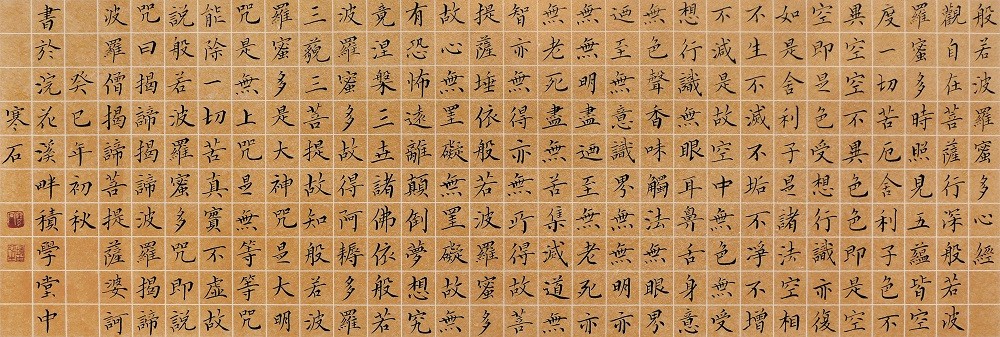 般若波羅蜜多心經
觀自在菩薩行深般若波
羅蜜多時照見五蘊皆空
度一切苦厄舍利子色不
異空空不異色色即是空
空即是色受想行識亦復
如是舍利子是諸法空相
不生不滅不垢不淨不增
不減是故空中無色無受
想行識無眼耳鼻舌身意
無色聲香味觸法無眼界
迺至無意識界無無明亦
無無明盡迺至無老死亦
無老死盡無苦集滅道無
智亦無得亦無所得故菩
提薩埵依般若波羅蜜多
故心無罣礙無罣礙故無
有恐怖遠離顛倒夢想究
竟涅槃三世諸佛依般若
波羅蜜多故得阿耨多羅
三藐三菩提故知般若波
羅蜜多是大神咒是大明
咒是無上咒是無等等咒
能除一切苦真實不虛故
說般若波羅蜜多咒即說
咒曰揭諦揭諦波羅揭諦
波羅僧揭諦菩提薩婆訶
癸巳年初秋
書於浣花溪畔積學堂中
寒石